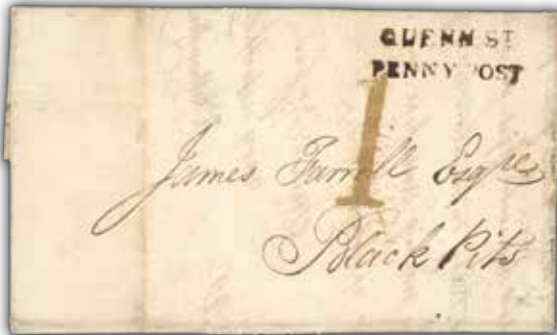 QUENN ST
PENNY POST
1
James Farrell Esqre
Black Pits